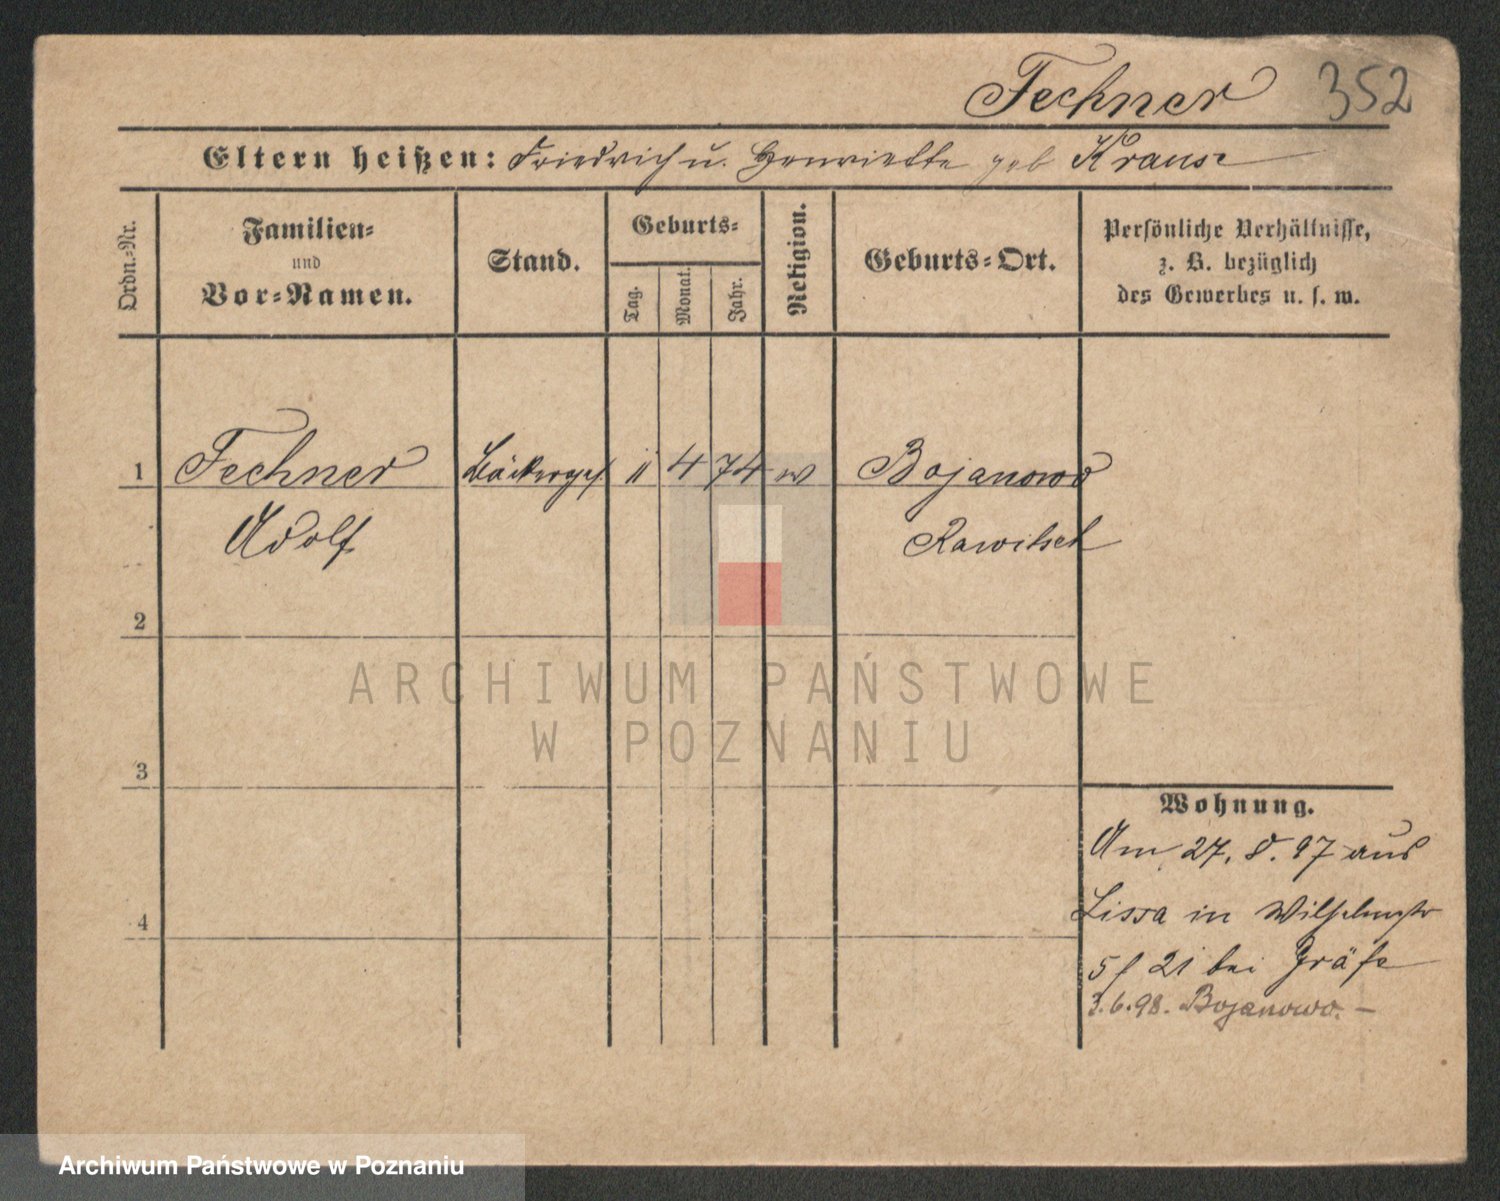 Fechner 352
Eltern heißen: Friedrich u. Henriette geb Krause
Ordn.-Nr.
Familien-
und
Vor-Namen.
Stand.
Geburts-
Tag.
Monat.
Jahr.
Religion.
Geburts-Ort.
Persönliche Verhältnisse,
z. B. bezüglich
des Gewerbes u. s. w.
1 Fechner Bäckerges. 11 4 74 ev Bojanowo
Adolf Rawitsch
2
ARCHIWUM PAŃSTWOWE
W POZNANIU
3
Wohnung.
Am 27. 8. 97 aus
4
Lissa in Wilhelmstr
5 / 21 bei Gräfe
3.6.98. Bojanowo. –
Archiwum Państwowe w Poznaniu